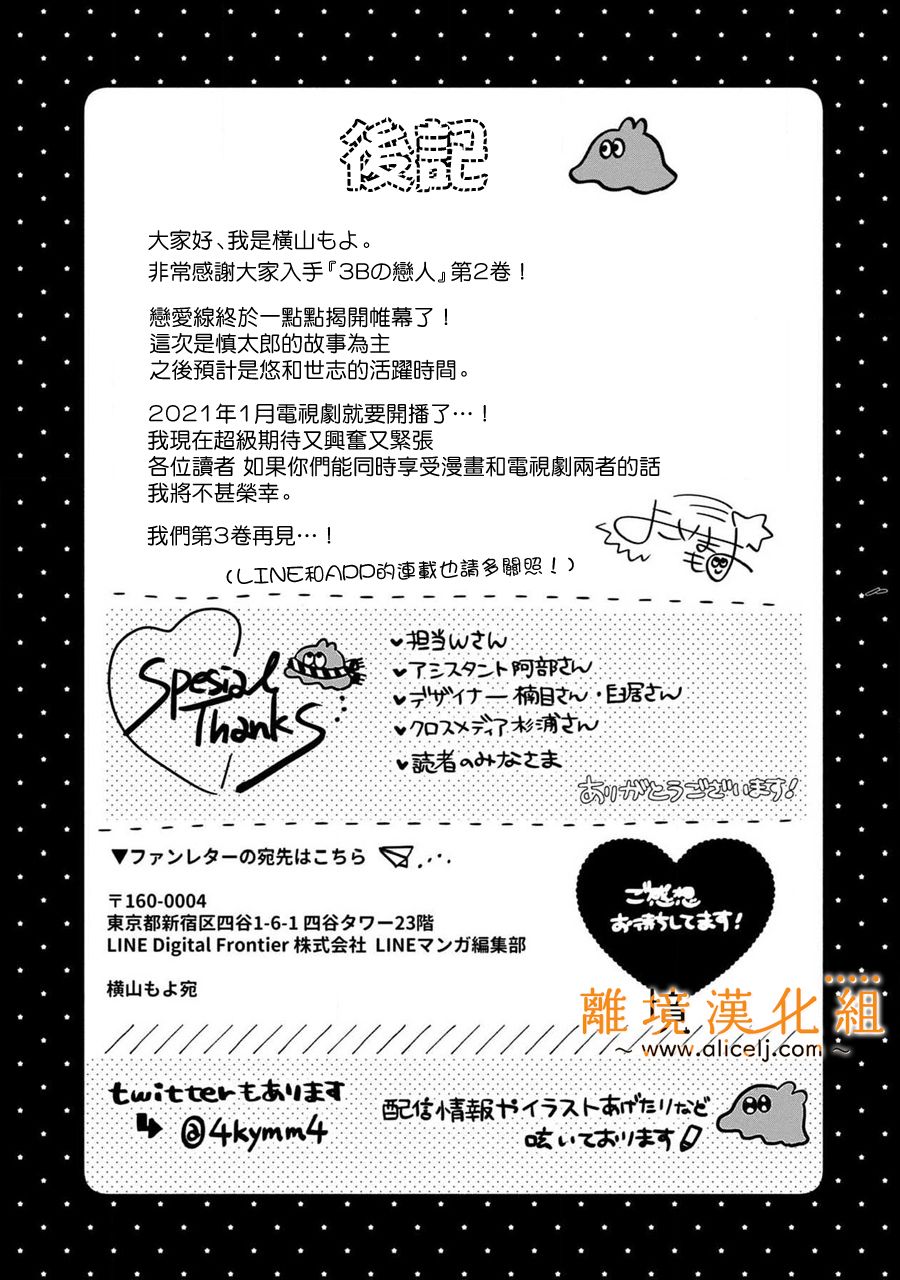 後記
大家好、我是横山もよ。
非常感謝大家入手『3Bの戀人』第2卷！
戀愛線終於一點點揭開帷幕了！
這次是慎太郎的故事為主
之後預計是悠和世志的活躍時間。
2021年1月電視劇就要開播了…！
我現在超級期待又興奮又緊張
各位讀者 如果你們能同時享受漫畫和電視劇兩者的話
我將不甚榮幸。
我們第3卷再見…！
(LINE和APP的連載也請多關照！)
Spesial
Thanks
担当Wさん
アシスタント 阿部さん
デザイナー 楠目さん・臼居さん
クロスメディア 杉浦さん
読者のみなさま
ありがとうございます!
▼ファンレターの宛先はこちら
〒160-0004
東京都新宿区四谷1-6-1 四谷タワー23階
LINE Digital Frontier 株式会社 LINEマンガ編集部
横山もよ宛
ご感想
お待ちしてます!
離境漢化組
～ www.alicelj.com ～
twitterもあります
@4kymm4
配信情報やイラストあげたりなど
呟いております